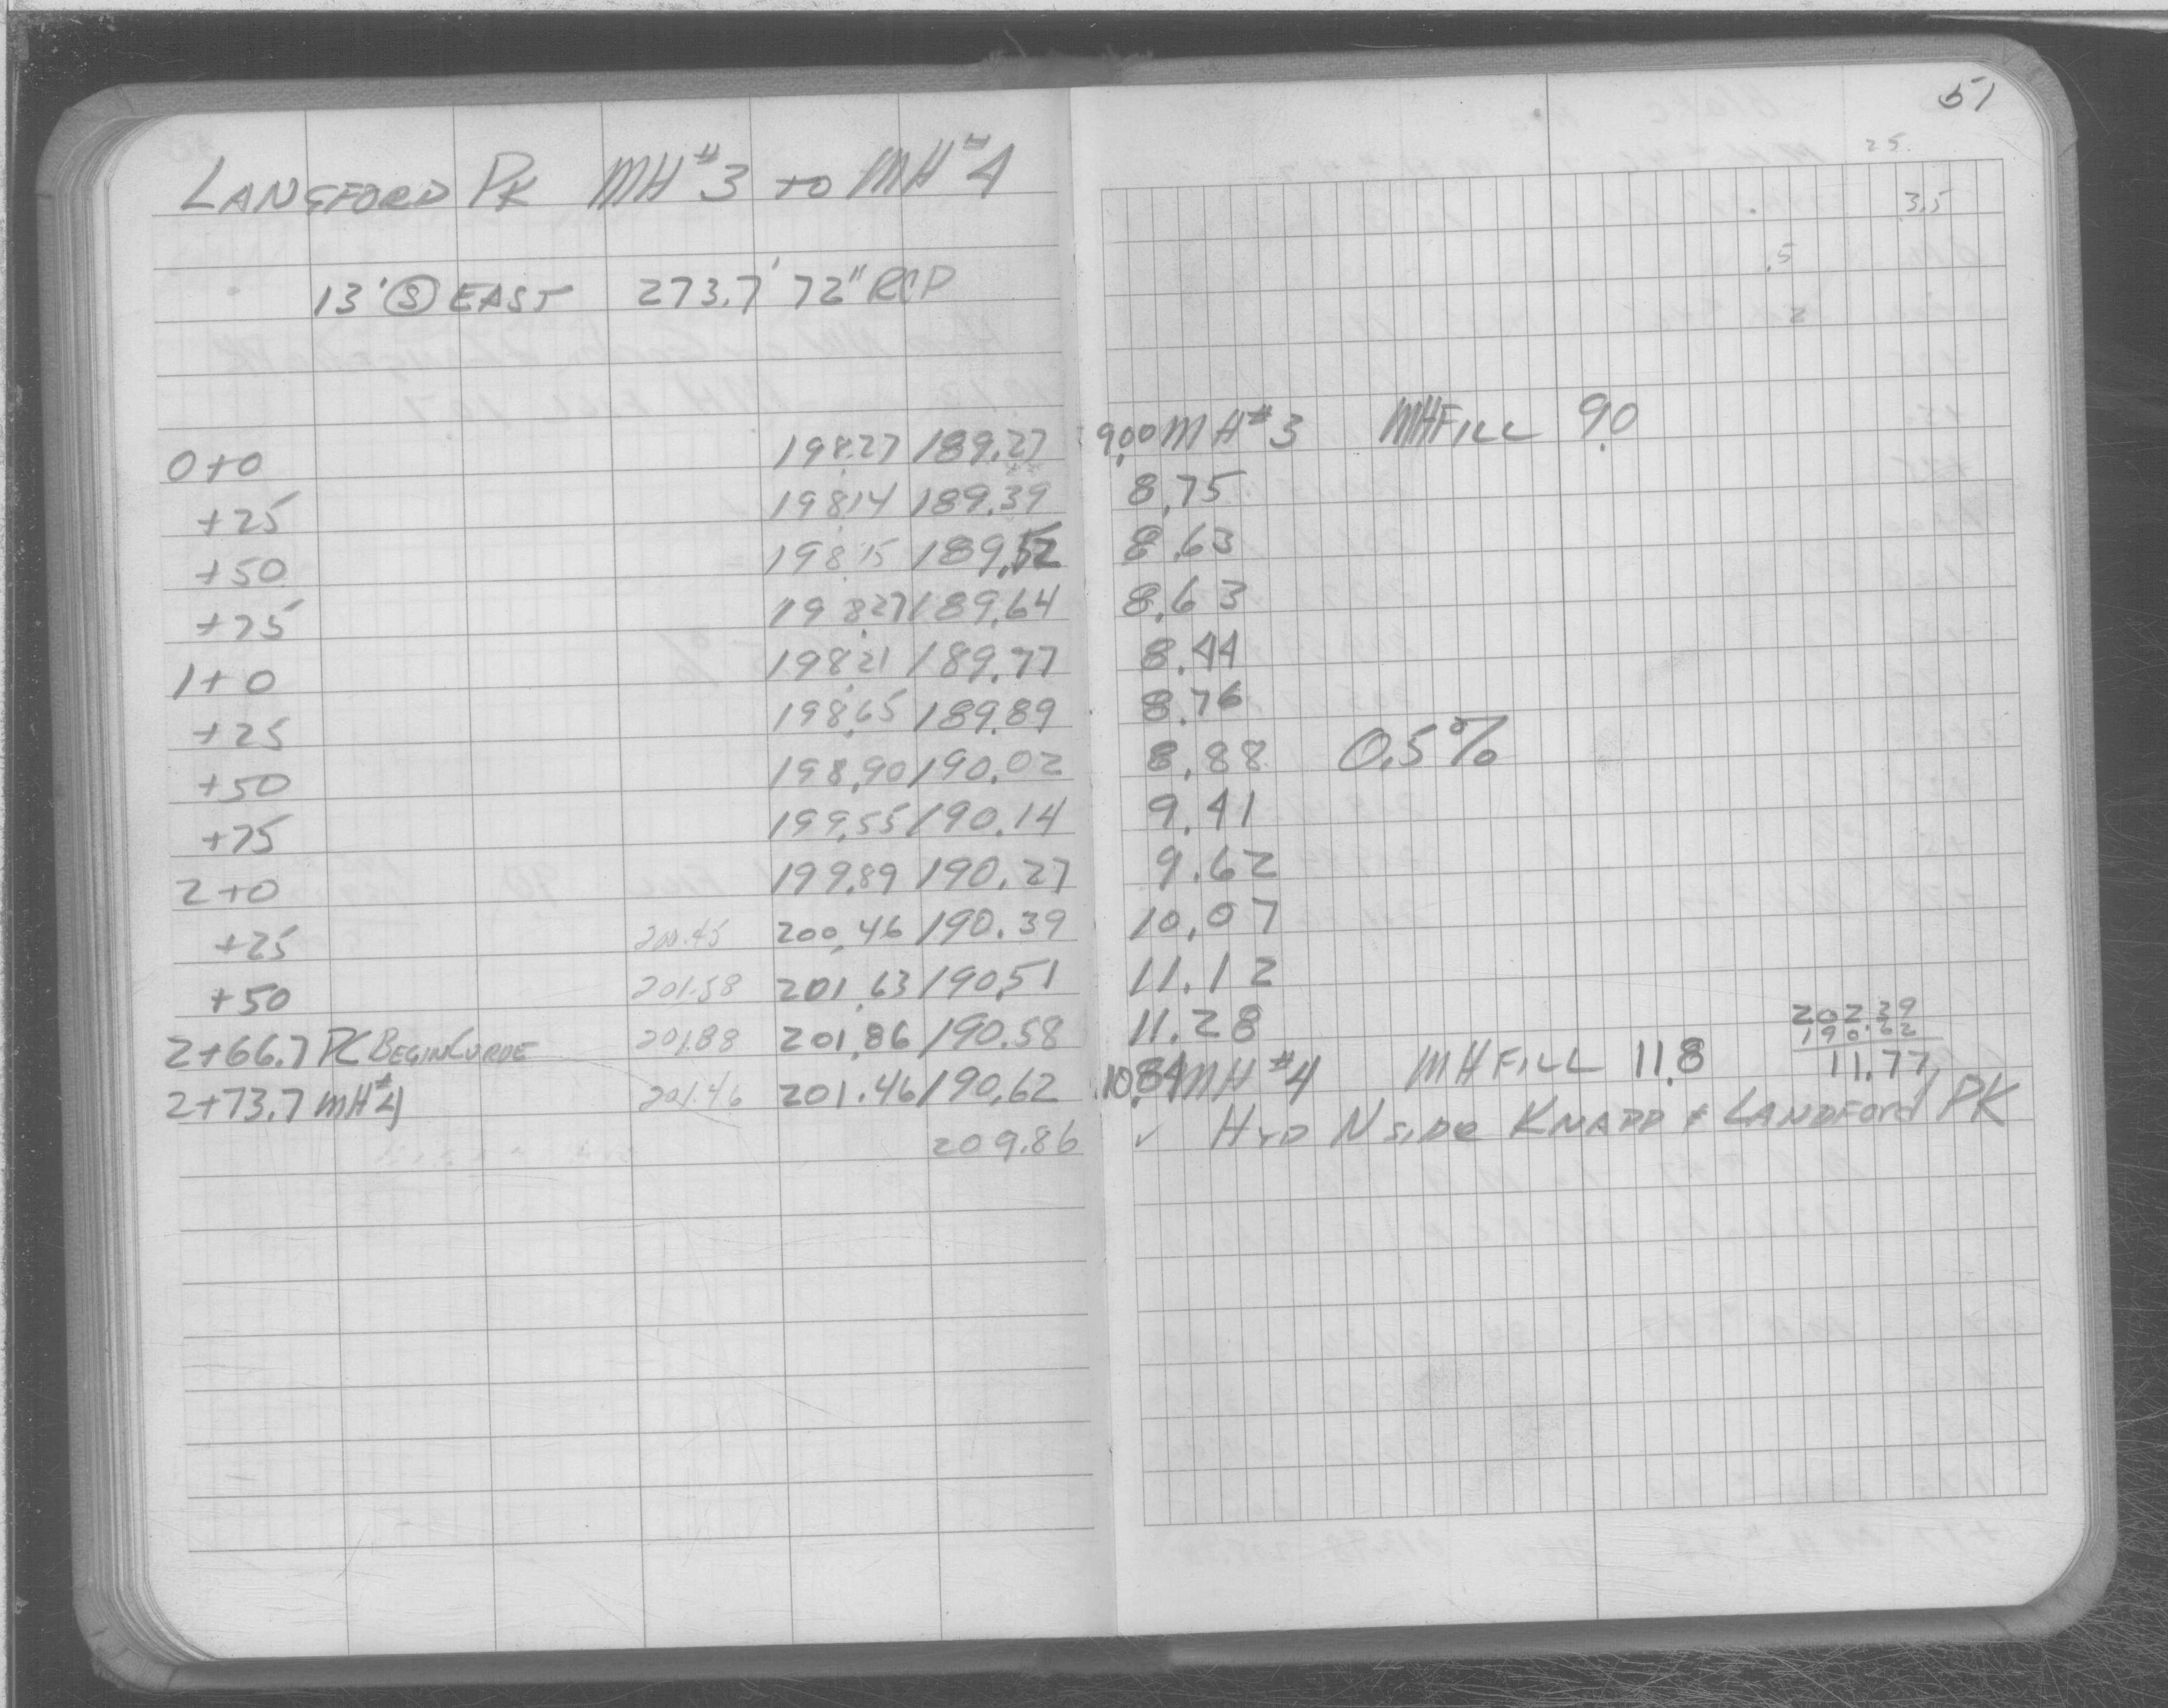 51
LANGFORD PK MH#3 to MH#4
25.
3.5
.5
2
13' (S) EAST 273.7' 72" RCP
0+0 198.27 189.27 9.00 MH#3 MH FILL 9.0
+25 198.14 189.39 8.75
+50 198.15 189.52 8.63
+75 198.27 189.64 8.63
1+0 198.21 189.77 8.44
+25 198.65 189.89 8.76
+50 198.90 190.02 8.88 0.5%
+75 199.55 190.14 9.41
2+0 199.89 190.27 9.62
+25 200.45 200.46 190.39 10.07
+50 201.58 201.63 190.51 11.12
2+66.7 PC BEGIN CURVE 201.88 201.86 190.58 11.28
202.39
190.62
11.77
2+73.7 MH#4 201.46 201.46 190.62 10.84 MH#4 MH FILL 11.8
209.86 ✓ HYD N SIDE KNAPP & LANDFORD PK